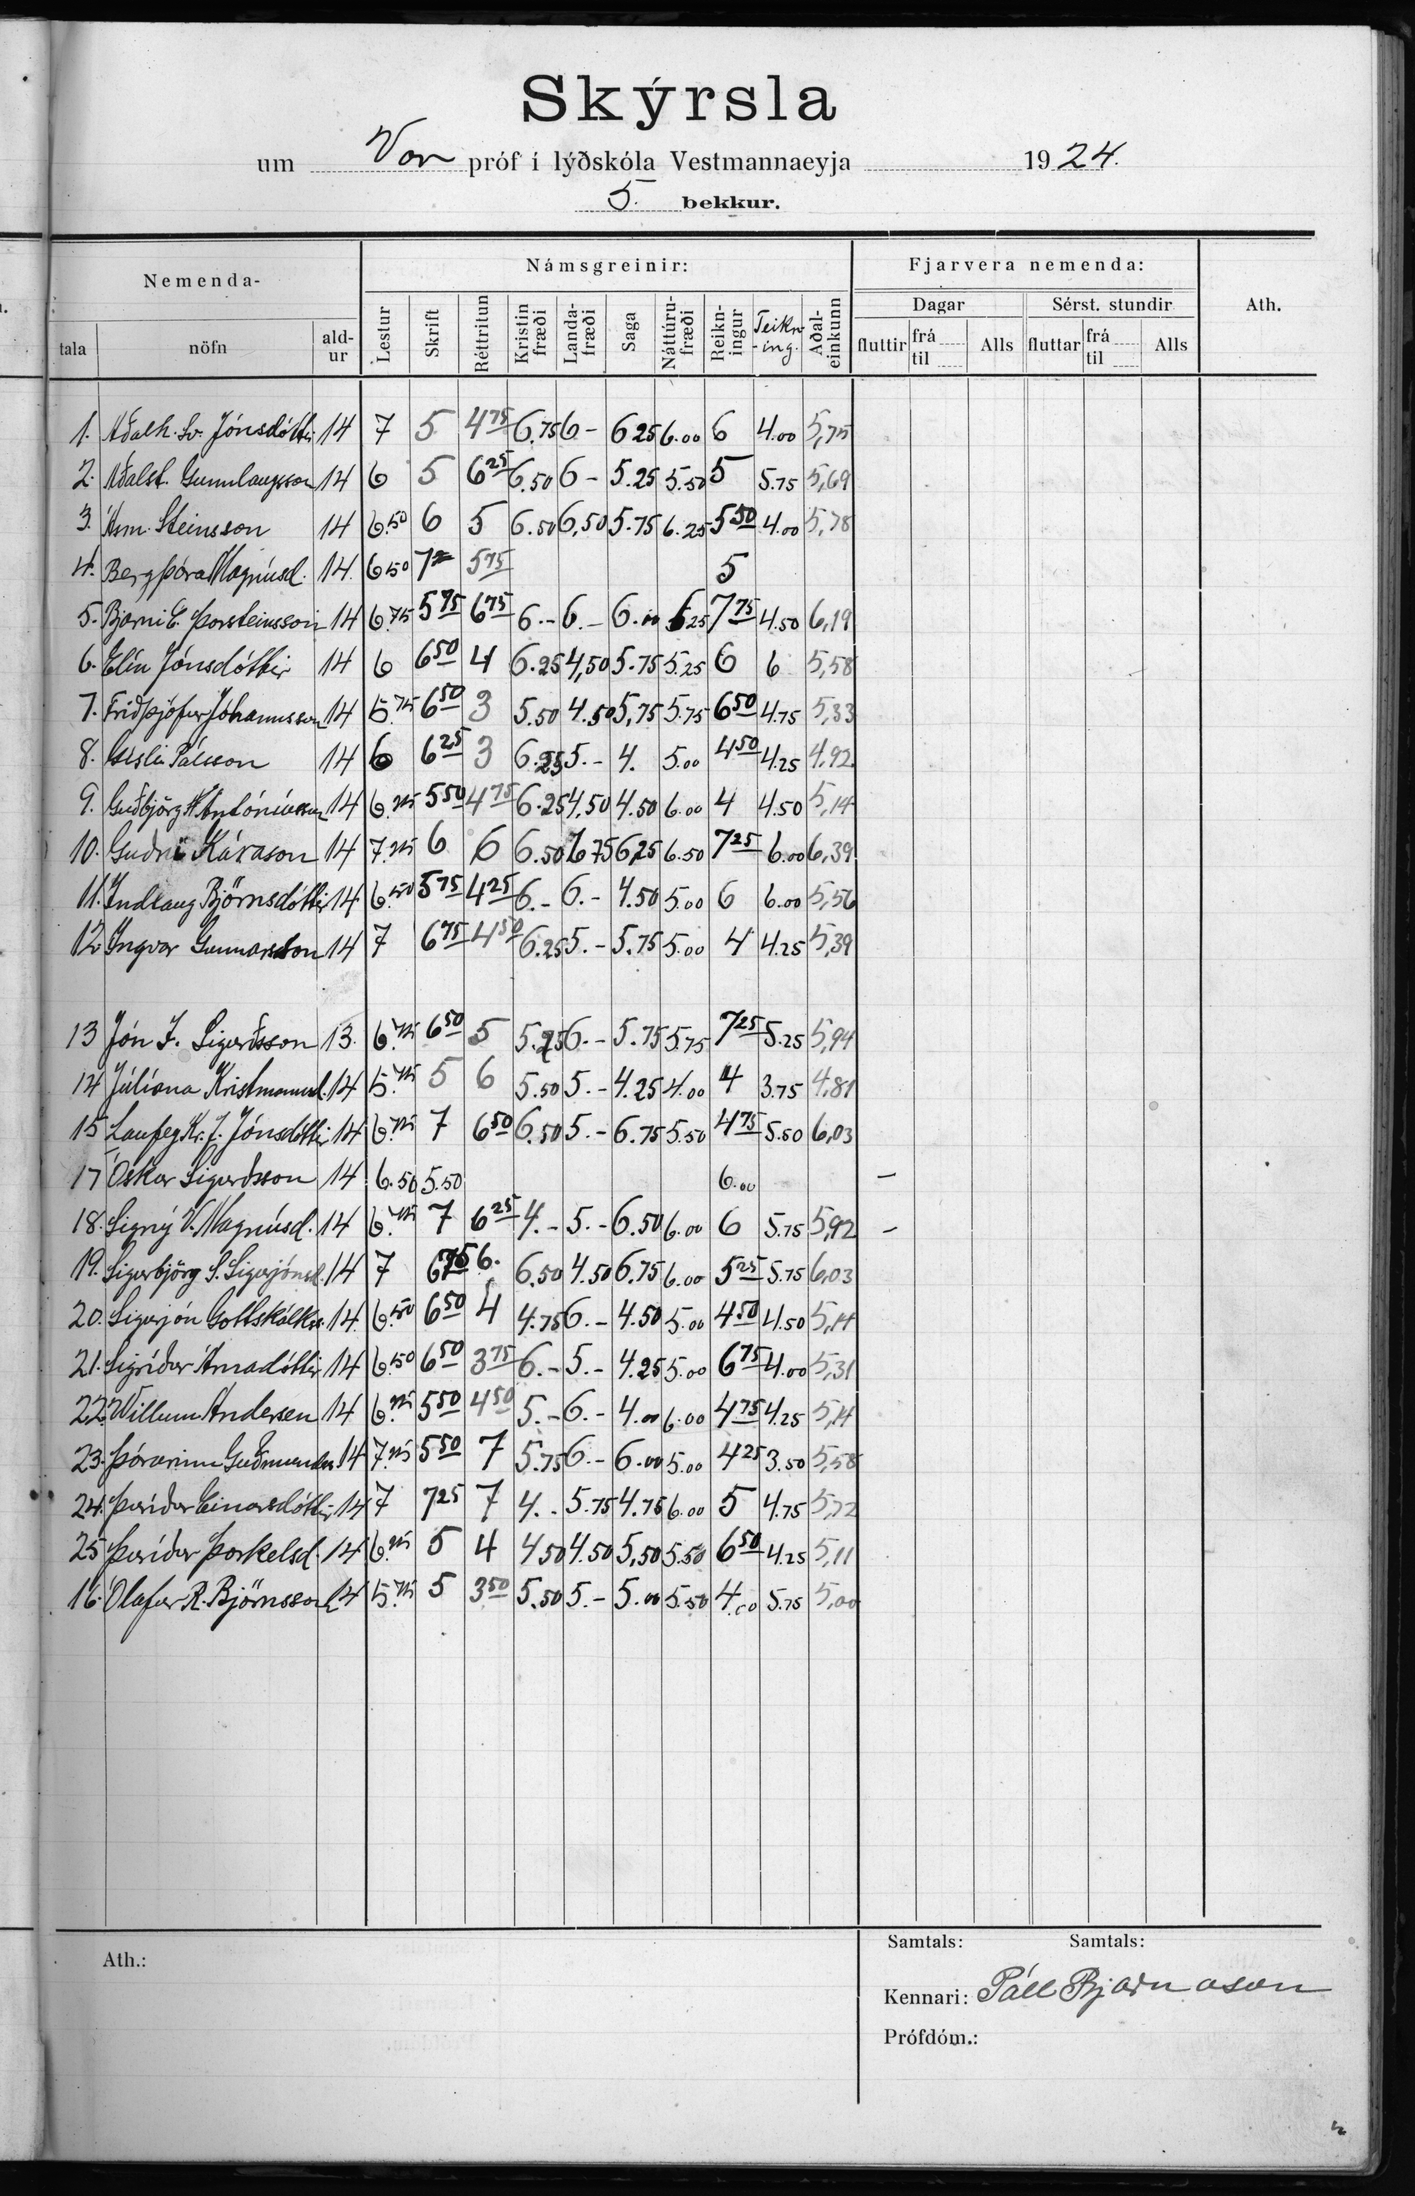 Skýrsla
um Vor próf í lýðskóla Vestmannaeyja 1924.
5. bekkur.
Nemenda- Námsgreinir: Fjarvera nemenda: Ath.
Dagar Sérst. stundir
tala nöfn ald-ur Lestur Skrift Réttritun Kristin fræði Landa-fræði Saga Náttúru-fræði Reikn-ingur Teikn-ing. Aðal-einkunn fluttir frá til Alls fluttar frá til Alls
1. Aðalh. Sv. Jónsdóttir 14 7 5 4 75 6.75 6- 6 25 6.00 6 4.00 5,75
2. Aðalst. Gunnlaugsson 14 6 5 6 25 6.50 6- 5.25 5.50 5 5.75 5,69
3. Ásm. Steinsson 14 6.50 6 5 6.50 6,50 5.75 6.25 5 50 4.00 5,78
4. Bergþóra Magnúsd. 14. 6 50 7 5 75 5
5. Bjarni E. Þorsteinsson 14 6.75 5 75 6 75 6.- 6.- 6.00 6 25 7 75 4.50 6,19
6. Elín Jónsdóttir 14 6 6 50 4 6.25 4,50 5.75 5.25 6 6 5,58
7. Friðþjófur Jóhannsson 14 5.75 6 50 3 5.50 4.50 5,75 5.75 6 50 4.75 5,33
8. Gísli Pálsson 14 6 6 25 3 6.25 5.- 4. 5.00 4 50 4.25 4,92
9. Guðbjörg 14 6.75 5 50 4 75 6.25 4,50 4.50 6.00 4 4.50 5,14
10. Guðni Kárason 14 7.25 6 6 6.50 6 75 6,25 6.50 7 25 6.00 6,39
11. Indlaug Björnsdóttir 14 6.50 5 75 4 25 6.- 6.- 4.50 5.00 6 6.00 5,56
12. Ingvar Gunnarsson 14 7 6 75 4 50 6.25 5.- 5.75 5.00 4 4.25 5,39
13 Jón Sigurðsson 13. 6.75 6 50 5 5.25 6.- 5.75 5.75 7 25 5.25 5,94
14 Júlíana Kristmannsd. 14 5.75 5 6 5.50 5.- 4.25 4.00 4 3.75 4,81
15 Laufey Kr. J. Jónsdóttir 14 6.75 7 6 50 6.50 5.- 6.75 5.50 4 75 5.50 6,03
17 Óskar Sigurðsson 14 6.50 5.50 6.00 –
18. Signý V. Magnúsd. 14 6.75 7 6 25 4.- 5.- 6.50 6.00 6 5.75 5,92 –
19. Sigurbjörg S. Sigurjónsd. 14 7 6. 6,50 4.50 6.75 6.00 5 25 5.75 6,03
20. Sigurjón Gottskálkss. 14. 6.50 6 50 4 4.75 6.- 4.50 5.00 4 50 4.50 5,14
21. Sigríður Árnadóttir 14 6.50 6 50 3 75 6.- 5.- 4.25 5.00 6 75 4.00 5,31
22. Willum Andersen 14 6.75 5 50 4 50 5.- 6.- 4.00 6.00 4 75 4.25 5,14
23. Þórarinn Guðmundss. 14 7.25 5 50 7 5.75 6.- 6.00 5.00 4 25 3.50 5,58
24. Þuríður Einarsdóttir 14 7 7 25 7 4.. 5.75 4.75 6.00 5 4.75 5,72
25 Þuríður Þorkelsd. 14 6.25 5 4 4 50 4.50 5,50 5.50 6 50 4.25 5,11
16. Ólafur R. Björnsson 14 5.75 5 3 50 5.50 5.- 5.00 5.50 4.00 5.75 5,00
Samtals: Samtals:
Ath.:
Kennari: Páll Bjarnason
Prófdóm.: